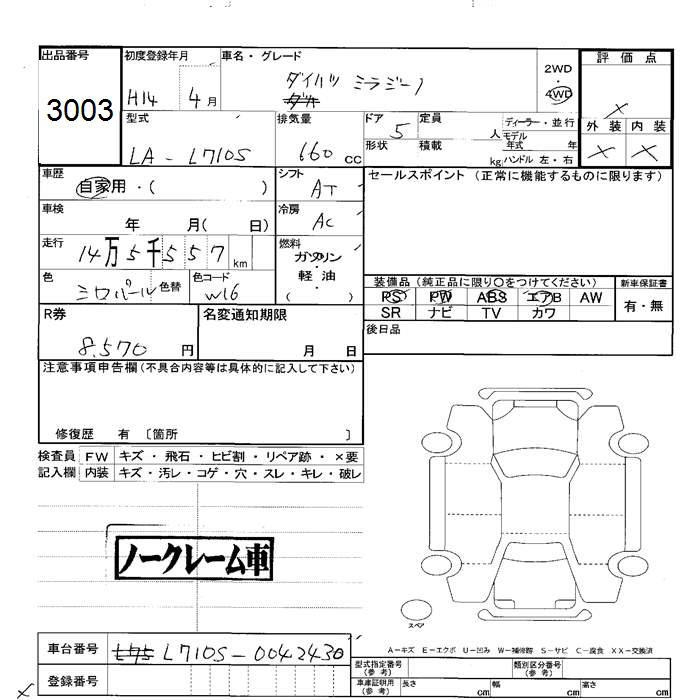 出品番号 初度登録年月 車名・グレード 評価点
3003 H14 4月 ダイハツ ミラジーノ 2WD・4WD ×
型式 排気量 ドア 定員 ディーラー・並行 外装 内装
LA-L710S 660cc 5 人 モデル年式 年 × ×
形状 積載 kg ハンドル 左・右
車歴 シフト セールスポイント (正常に機能するものに限ります)
自家用・( ) AT
車検 冷房
年 月( 日) AC
走行 燃料
14万5千557km ガソリン・軽・油( )
色 色替 色コード 装備品(純正品に限り〇をつけてください) 新車保証書
W16 PS PW ABS エアB AW 有・無
SR ナビ TV カワ
R券 名変通知期限 後日品
8,570円 月 日
注意事項申告欄(不具合内容等は具体的に記入して下さい)
修復歴 有 〔箇所 〕
検査員 FW キズ・飛石・ヒビ割・リペア跡・×要
記入欄 内装 キズ・汚レ・コゲ・穴・スレ・キレ・破レ
ノークレーム車
スペア
A-キズ E-エクボ U-凹み W-補修跡 S-サビ C-腐食 XX-交換済
車台番号 L710S-0042430 型式指定番号(参考) 類別区分番号(参考)
登録番号 車庫証明用(参考) 長さ cm 幅 cm 高さ cm